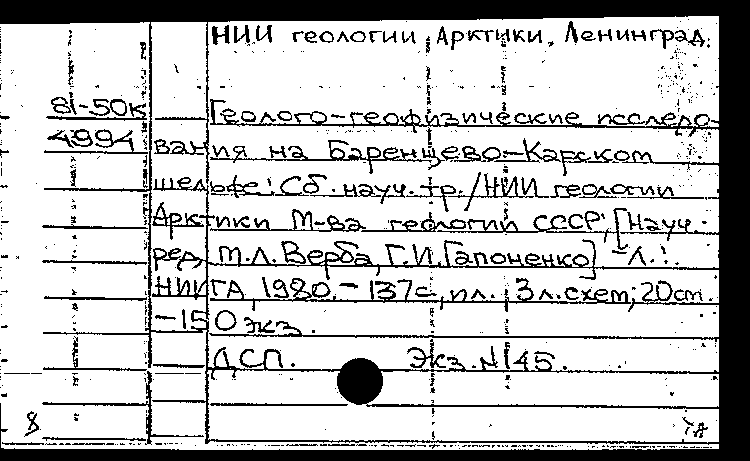 НИИ геологии Арктики, Ленинград.
81-50к Геолого-геофизические исследо-
4994 вания на Баренцево-Карском
шельфе: Сб. науч. тр./НИИ геологии
Арктики М-ва геологии СССР; [Науч.
ред. М.Л. Верба, Г.И. Гапоненко] -Л.:
НИИГА, 1980. - 137с., ил., 3 л. схем; 20см.
-150 экз.
ДСП. Экз. № 45.
8